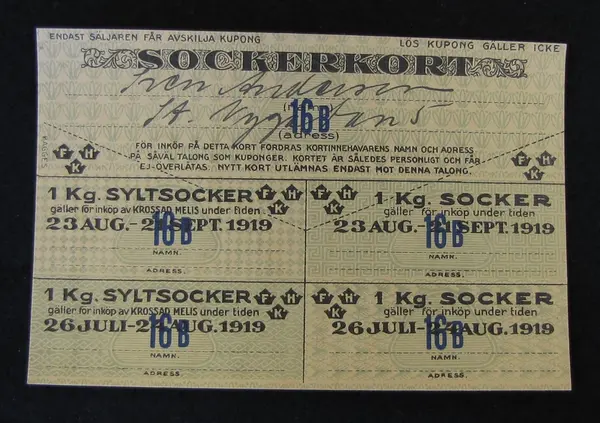 ENDAST SÄLJAREN FÅR AVSKILJA KUPONG
LÖS KUPONG GÄLLER ICKE
SOCKERKORT
Sven Andersson
16 B
St. Nygatan 5
(adress)
FÖR INKÖP PÅ DETTA KORT FORDRAS KORTINNEHAVARENS NAMN OCH ADRESS
PÅ SÅVÄL TALONG SOM KUPONGER. KORTET ÄR SÅLEDES PERSONLIGT OCH FÅR
EJ ÖVERLÅTAS. NYTT KORT UTLÄMNAS ENDAST MOT DENNA TALONG.
F H K
F H K
1 Kg. SYLTSOCKER
gäller för inköp av KROSSAD MELIS under tiden
23 AUG.-21 SEPT. 1919
16 B
NAMN.
ADRESS.
1 Kg. SOCKER
gäller för inköp under tiden
23 AUG.-21 SEPT. 1919
16 B
NAMN.
ADRESS.
1 Kg. SYLTSOCKER
F H K
gäller för inköp av KROSSAD MELIS under tiden
26 JULI-24 AUG. 1919
16 B
NAMN.
ADRESS.
F H K
1 Kg. SOCKER
gäller för inköp under tiden
26 JULI-24 AUG. 1919
16 B
NAMN.
ADRESS.